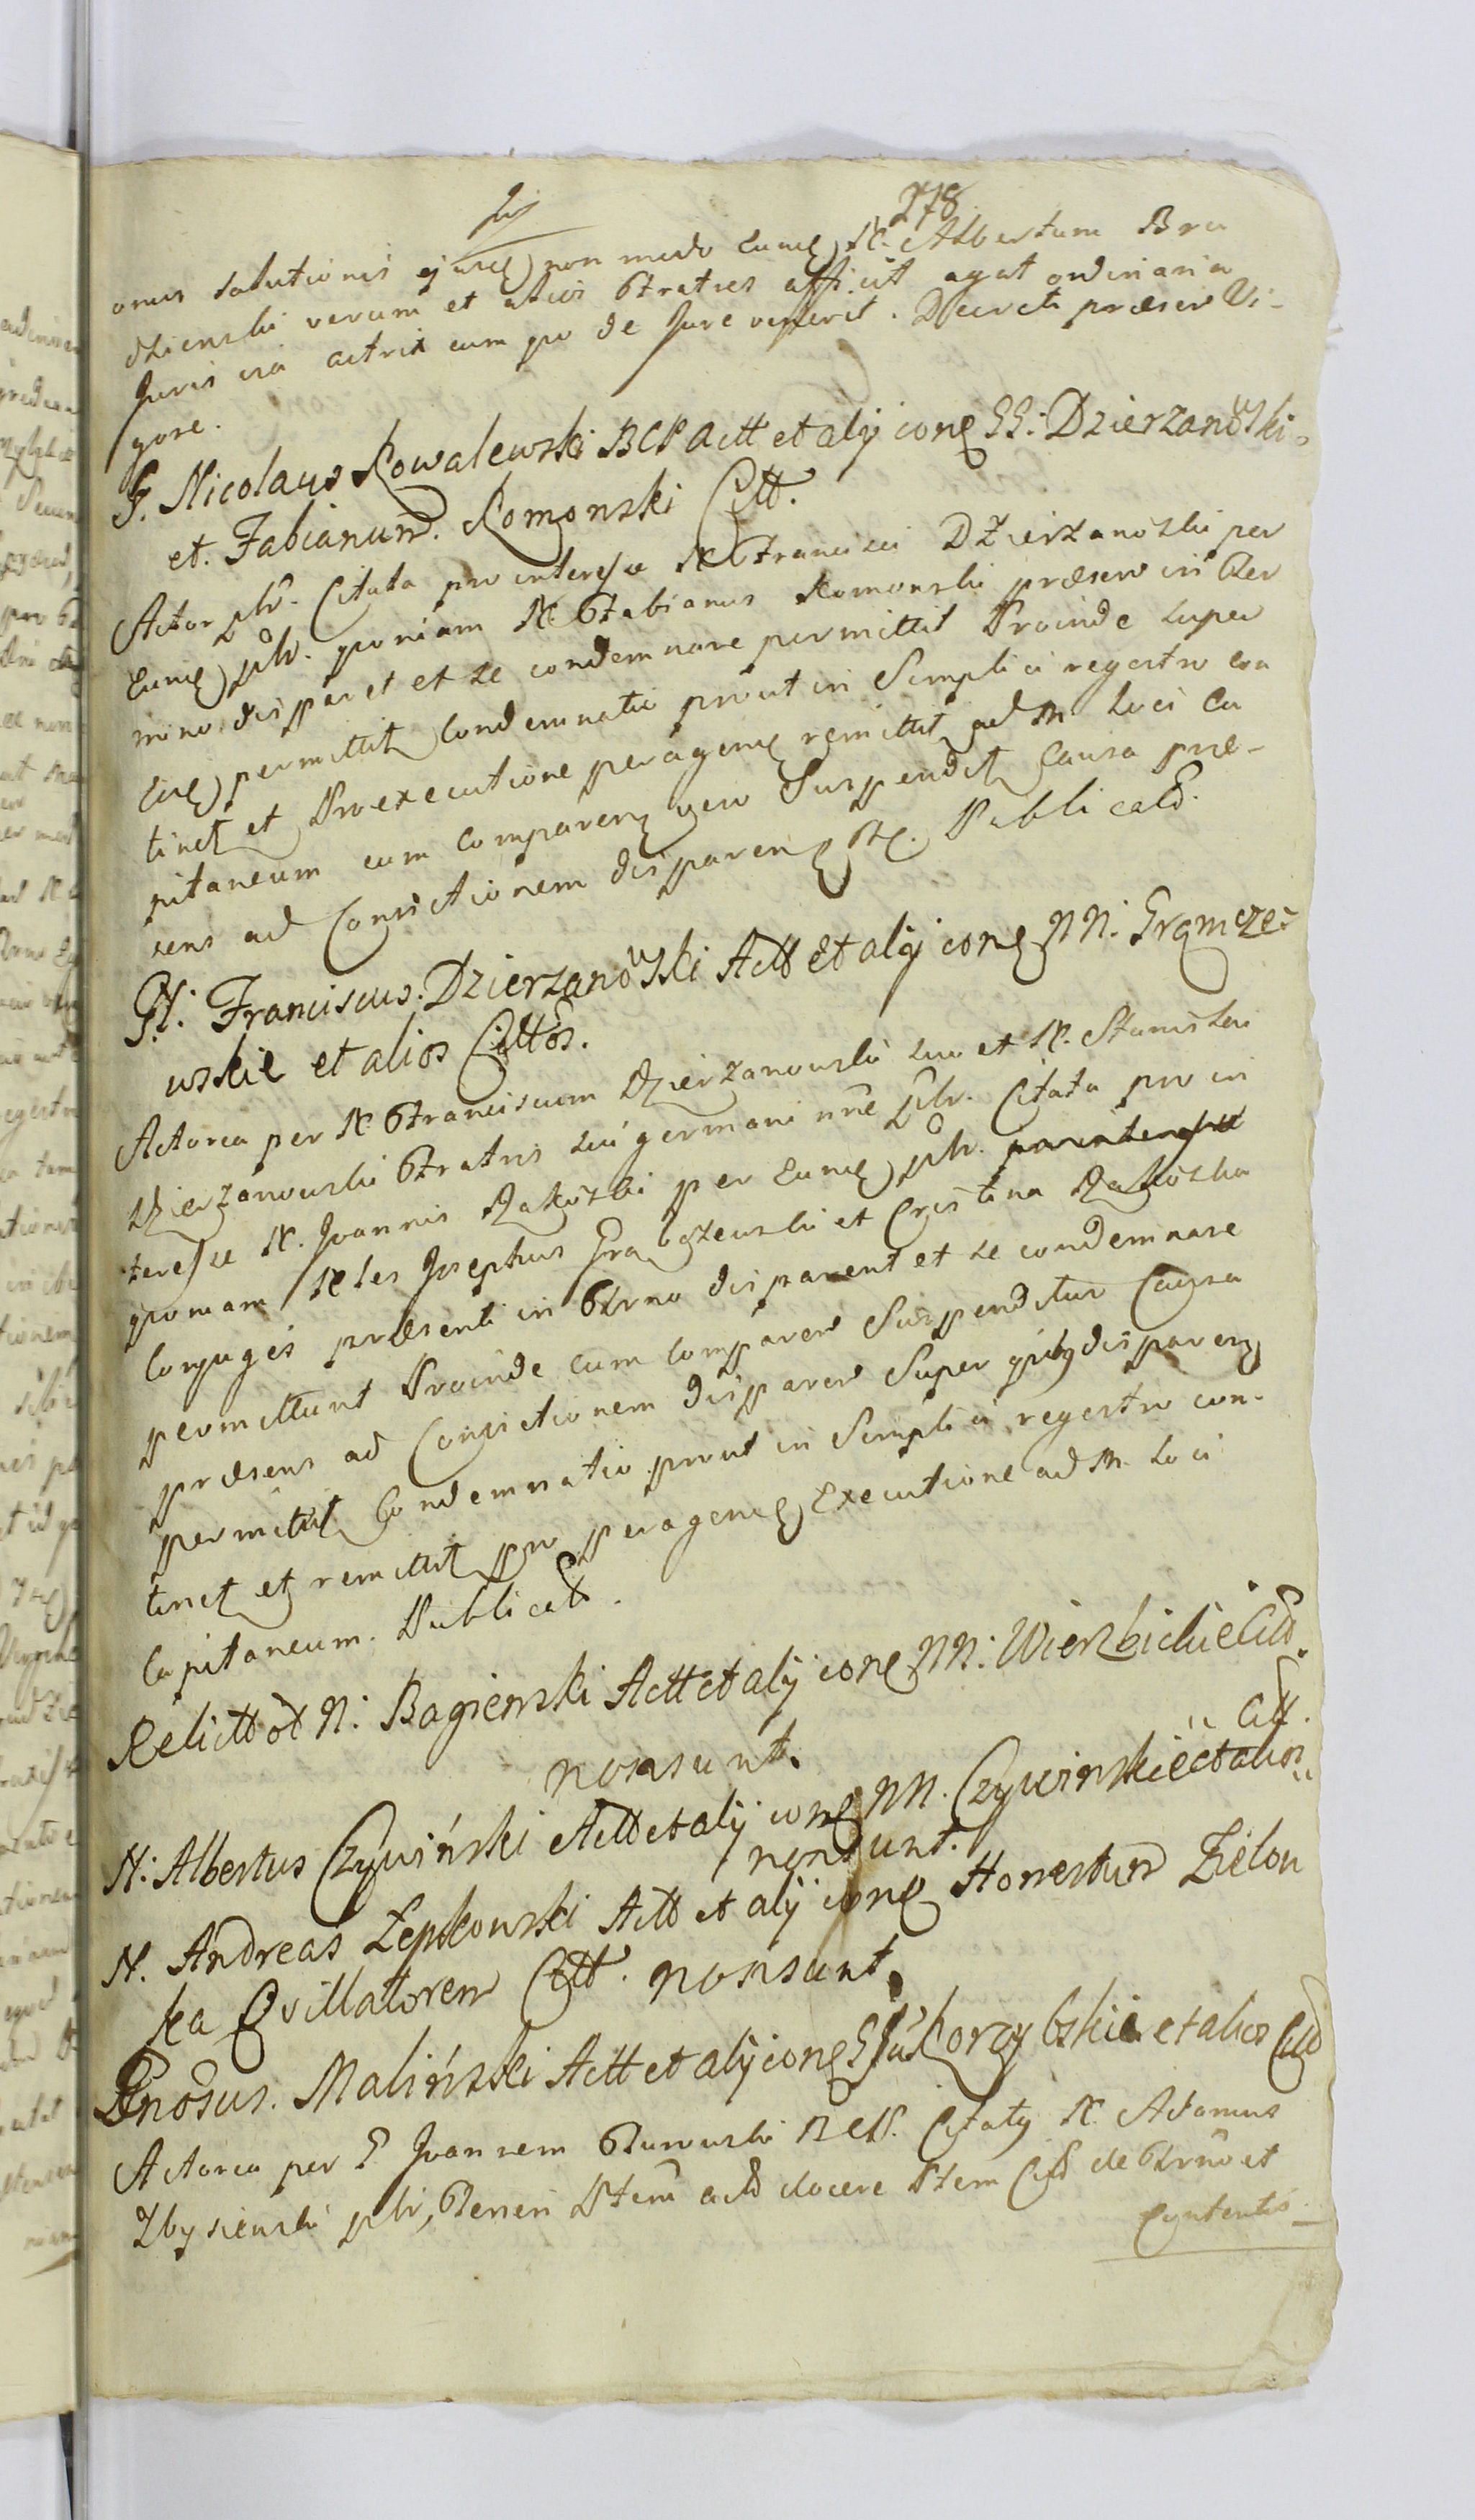 278
onus solutionis ejusd non modo eund N. Albertum Bra
dzienski verum et alios Fratres afficit agat ordinaria
Juris via actrix cum quo de Jure venerit. Decreti præsen Vi-
gore.
G. Nicolaus Kowalewski BCP Actt et alij cone GG: Dzierzanowski
et. Fabianum. Komonski Citt.
Actor plr. Citata pro interesse N. Francisci Dzierzanowski per
Eund plr. quoniam N. Fabianus Komonski præsen in Ter
mino disparet et se condemnare permittit Proinde super
permittit Condemnatio prout in Simplici regestro con
tinet et Pro executione peragend remittit ad M. Loci Ca
pitaneum cum comparen vero Suspendit Causa præ-
sens ad Convictionem disparen Publicat.
N: Franciscus. Dzierzanowski Actt et alij cone NN: Grąmcze-
wskie et alios Cittos.
Actorea per N. Franciscum Dzierzanowski suo et N. Stanislai
Dzierzanowski Fratris sui germani nne plr. Citata pro in
teresse N. Joannis Rakowski per Eund plr. pro interesse
quoniam Josephus Grąbczewski et Cristina Rakowska
Conjuges præsenti in Trno disparent et se condemnare
permittunt Proinde cum comparen Suspenditur Causa
præsens ad Convictionem disparen Super quibq disparen
permittit Condemnatio prout in Simplici regestro con-
tinet et remittit pro peragend Executione ad M. Loci
Capitaneum. Publicat.
Relictt ot N: Bagienski Actt et alij cone NN: Wierzbickie Citt.
non sunt.
N: Albertus Czywiński Actt et alij cone NN. Czywinskie et alios Citt.
non sunt.
N. Andreas Łepkowski Actt et alij cone Honestum Zielon
ka Citt. non sunt.
Gnosus. Maliński Actt et alij cone et alios Citt
Actorea per G Joannem Citaty N. Adamus
Zbysienski plr, docere Item Citt de Trno et
Contentis